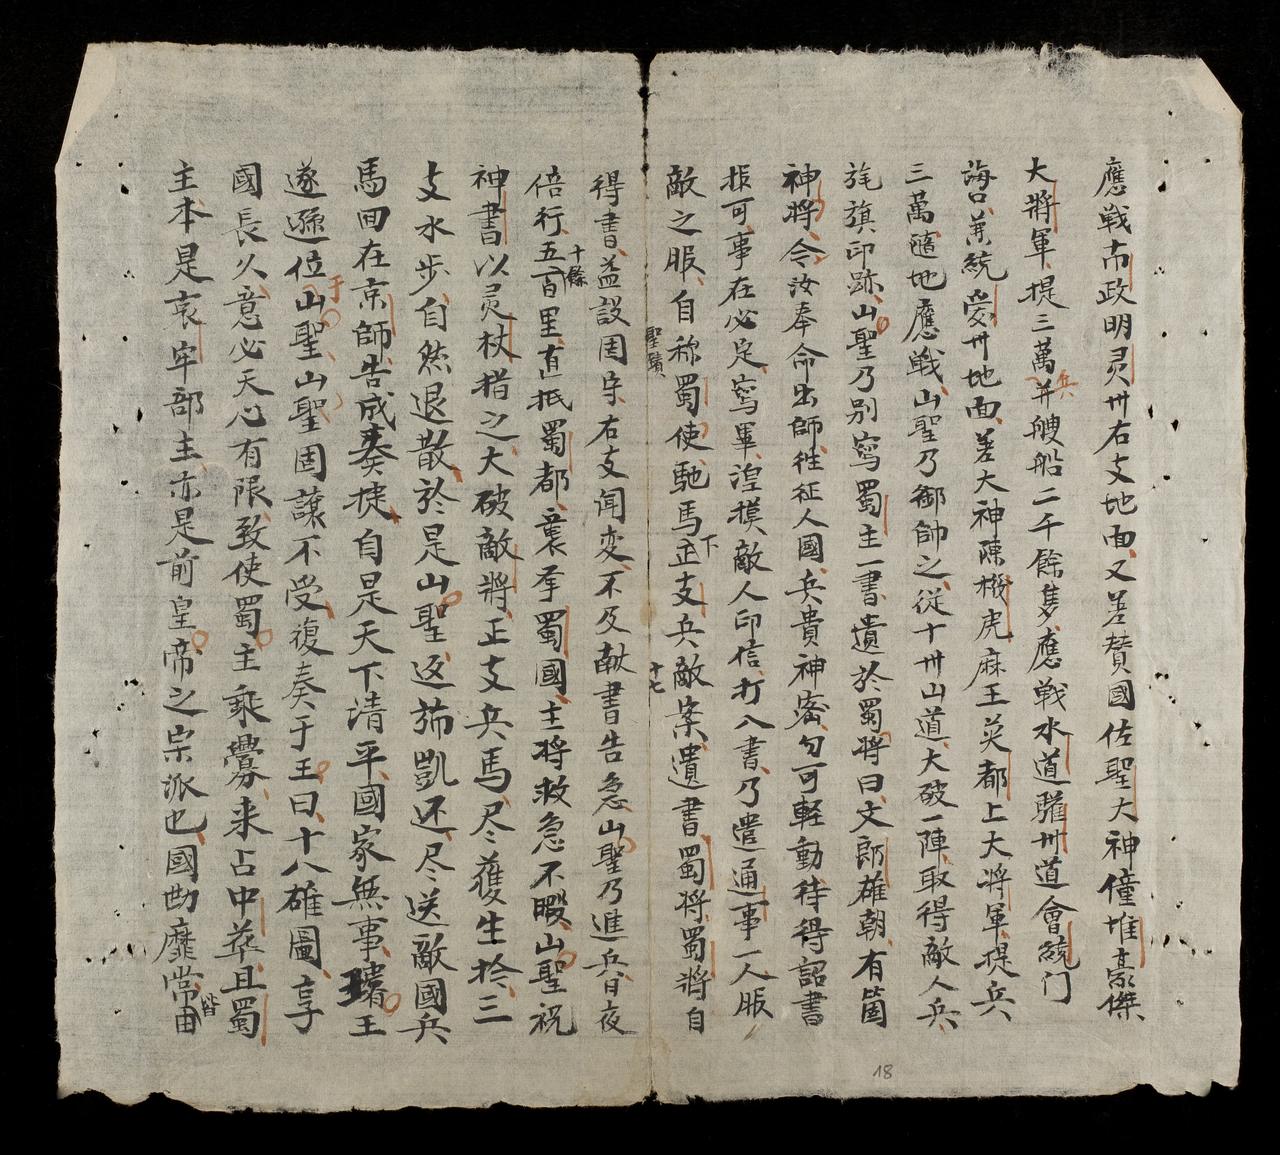 應戰市政明灵卅右支地面又差賛國佐聖大神僮堆豪傑
大將軍提三萬并艘船二千餘隻應戰水道驩州道會統门
兵
海口并統愛卅地面差大神陳機虎麻王災都上大將軍提兵
三萬隨地應戰山聖乃御帥之從十卅山道大破一陣取得敵人兵
旄旗印跡山聖乃别寫蜀主一書遺於蜀將曰文郎雄朝有箇
神將令汝奉命出師徃征人國兵貴神密勿可軽動待得詔書
振可事在必定寫軍湟摸敵人印信打入書乃遣通事一人服
敵之服自称蜀使馳馬正支兵敵案遺書蜀將蜀將自
下
十七
聖蹟
得書益設固守右支闻変不及献書告急山聖乃進兵日夜
倍行五百里直抵蜀都襄孥蜀國主將救急不暇山聖祝
十餘
神書以灵杖揩之大破敵將正支兵馬尽獲生擒三
支水步自然退散於是山聖返旆凱还尽送敵國兵
馬囬在京師告成奏捷自是天下清平國家無事璿王
遂遜位山聖山聖固譲不受復奏于王曰十八雄圖享
于
國長久意必天心有限致使蜀主乘釁来占中華且蜀
主本是哀牢部主亦是前皇帝之宗派也國勘靡常由
皆
18